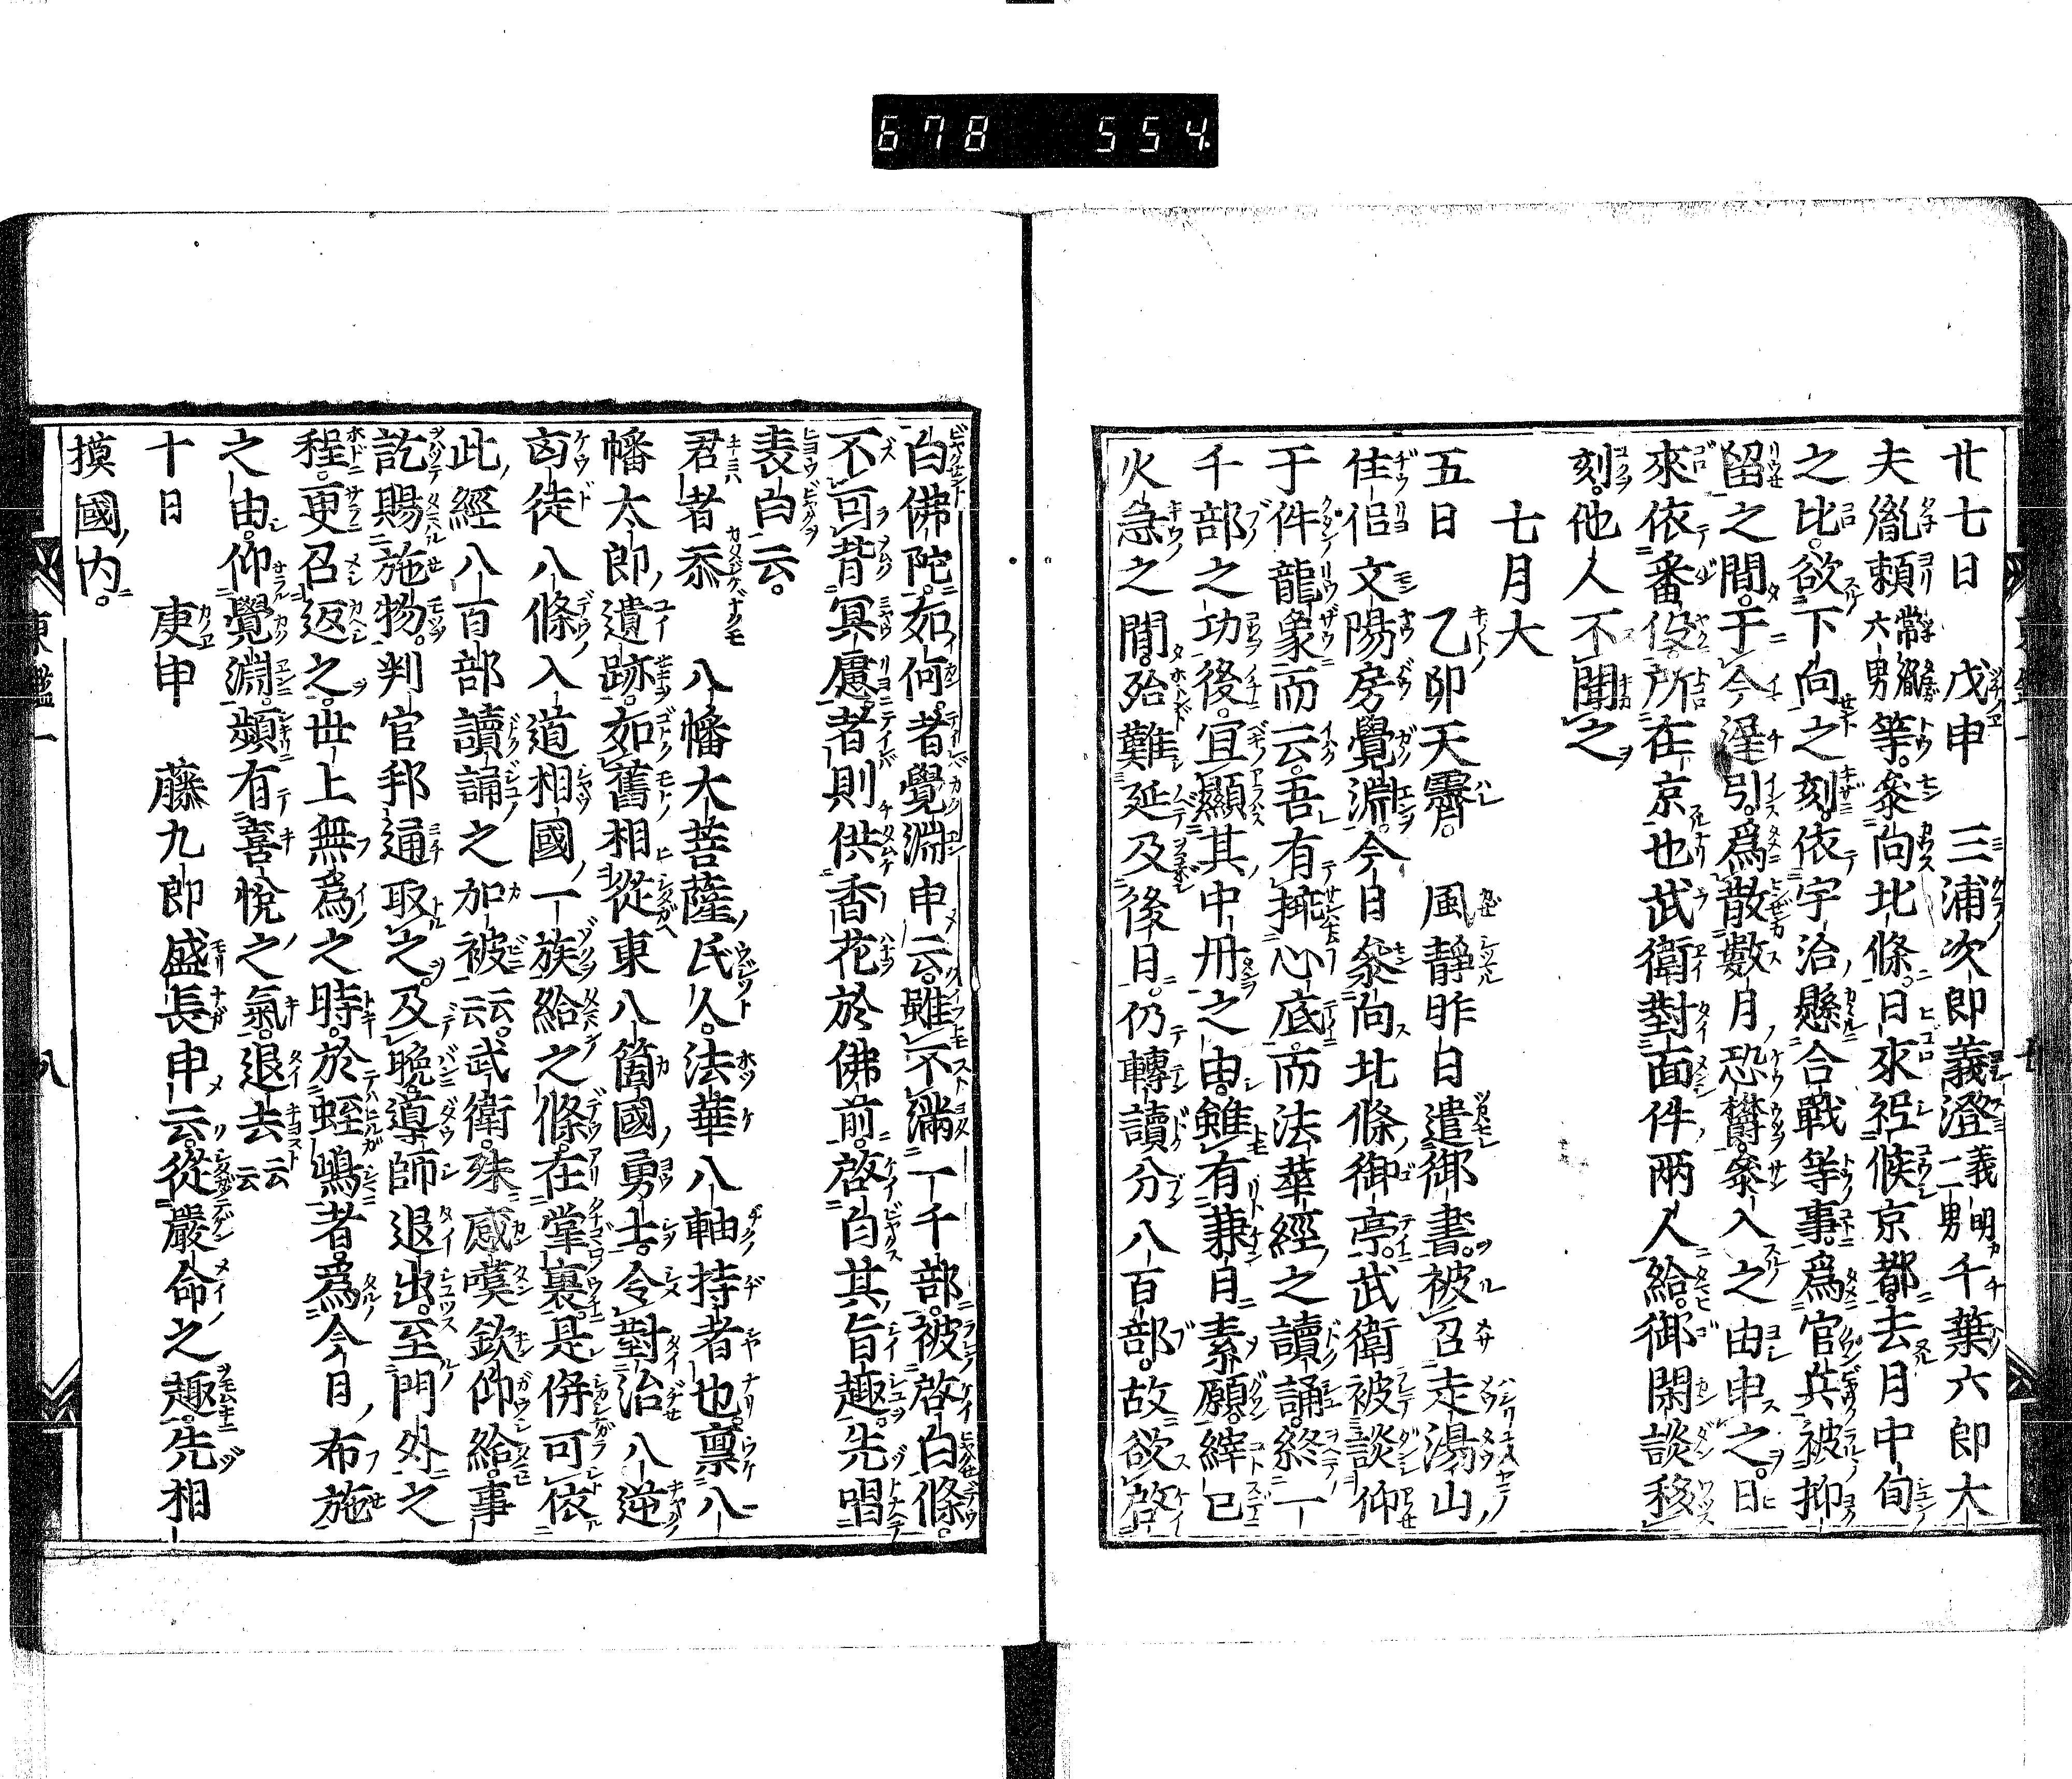 678 554
廿七日 戊申 三浦次郎義澄義明二男千葉六郎大
夫胤頼常胤六男等參向北條日來祗候京都去月中旬
之比欲下向之刻依宇治懸合戰等事爲官兵被抑
留之間于今遲引爲散數月恐欝參入之由申之日
來依番役所在京也武衛對面件兩人給御閑談移
刻他人不聞之
七月大
五日 乙卯天霽 風靜昨日遣御書被召走湯山
住侶文陽房覺淵今日參向北條御亭武衛被談仰
于件龍象而云吾有挿心底而法華經之讀誦終一
千部之功後宜顯其中丹之由雖有兼日素願縡已
火急之間殆難延及後日仍轉讀分八百部故欲啓
白佛陀如何者覺淵申云雖不滿一千部被啓白條
不可背冥慮者則供香花於佛前啓白其旨趣先唱
表白云
君者忝 八幡大菩薩氏人法華八軸持者也禀八
幡太郎遺跡如舊相從東八箇國勇士令對治八逆
凶徒八條入道相國一族給之條在掌裏是併可依
此經八百部讀誦之加被云云武衛殊感嘆欽仰給事
訖賜施物判官邦通取之及晩導師退出至門外之
程更召返之世上無爲之時於蛭嶋者爲今日布施
之由仰覺淵頻有喜悦之氣退去云云
十日 庚申 藤九郎盛長申云從嚴命之趣先相
摸國内
東鑑一 八